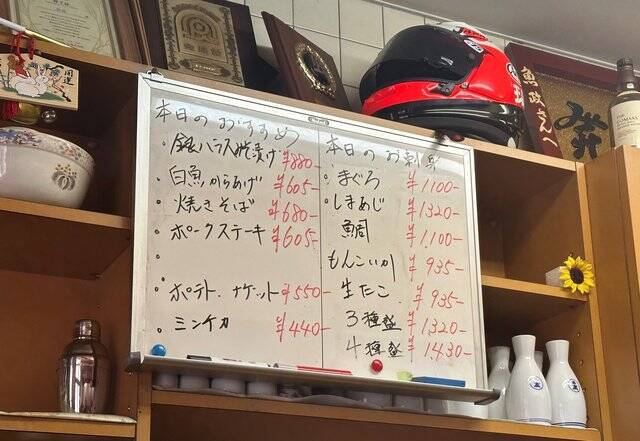 本日のおすすめ
・銀ハラス焼漬け ¥880-
・白魚からあげ ¥605-
・焼きそば ¥680-
・ポークステーキ ¥605-
・ポテト、ナゲット ¥550-
・ミンチカ ¥440-
本日のお刺身
・まぐろ ¥1.100-
・しまあじ ¥1320-
鯛 ¥1.100-
もんこいか ¥935-
生たこ ¥935-
3種盛 ¥1.320-
4種盛 ¥1.430-
魚政さんへ